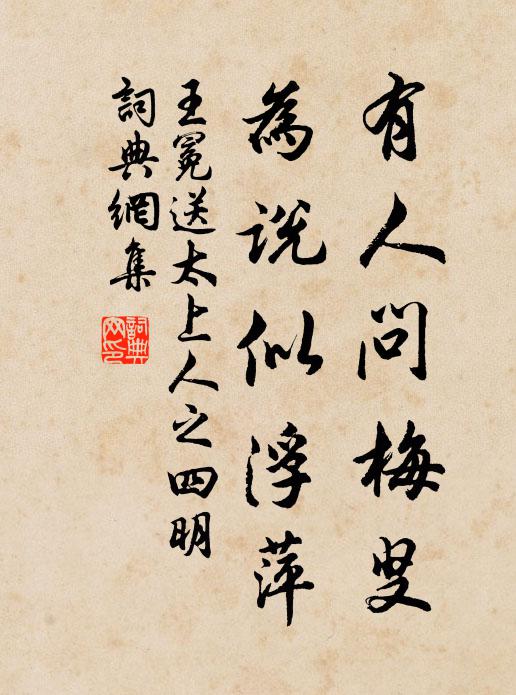 有人問梅叟
為說似浮萍
王冕送太上人之四明
詞典網集
詞典
网印